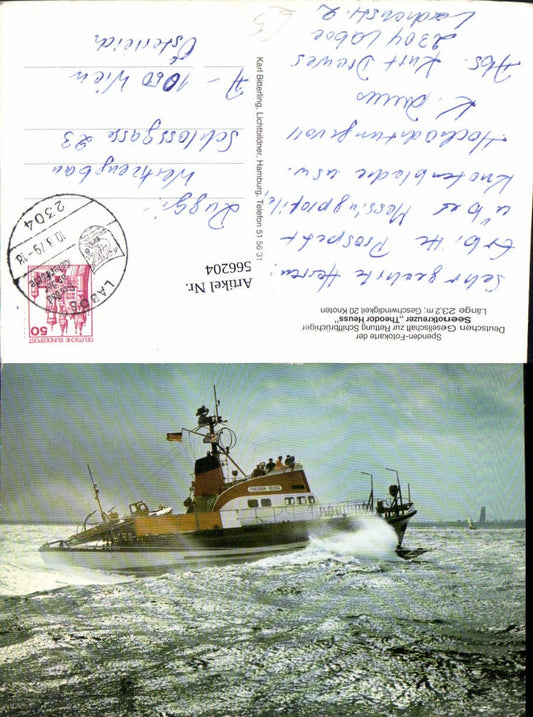 Spenden-Fotokarte der
Deutschen Gesellschaft zur Rettung Schiffbrüchiger
Seenotkreuzer „Theodor Heuss"
Länge 23,2 m; Geschwindigkeit 20 Knoten
Sehr geehrte Herren!
Erbitte Prospekt
üb er Messingprofile,
Knotenbleche usw.
Hochachtungsvoll
K. Drews
Abs. Kurt Drewes
2304 Laboe
Karl Bitterling, Lichtbildner, Hamburg, Telefon 51 56 31
Artikel Nr.
566204
DEUTSCHE BUNDESPOST
50
2304
LABOE
10.3.79-18
Ruggi
Werkzeugbau
Schlossgasse 23
A-1050 Wien
Österreich
THEODOR HEUSS